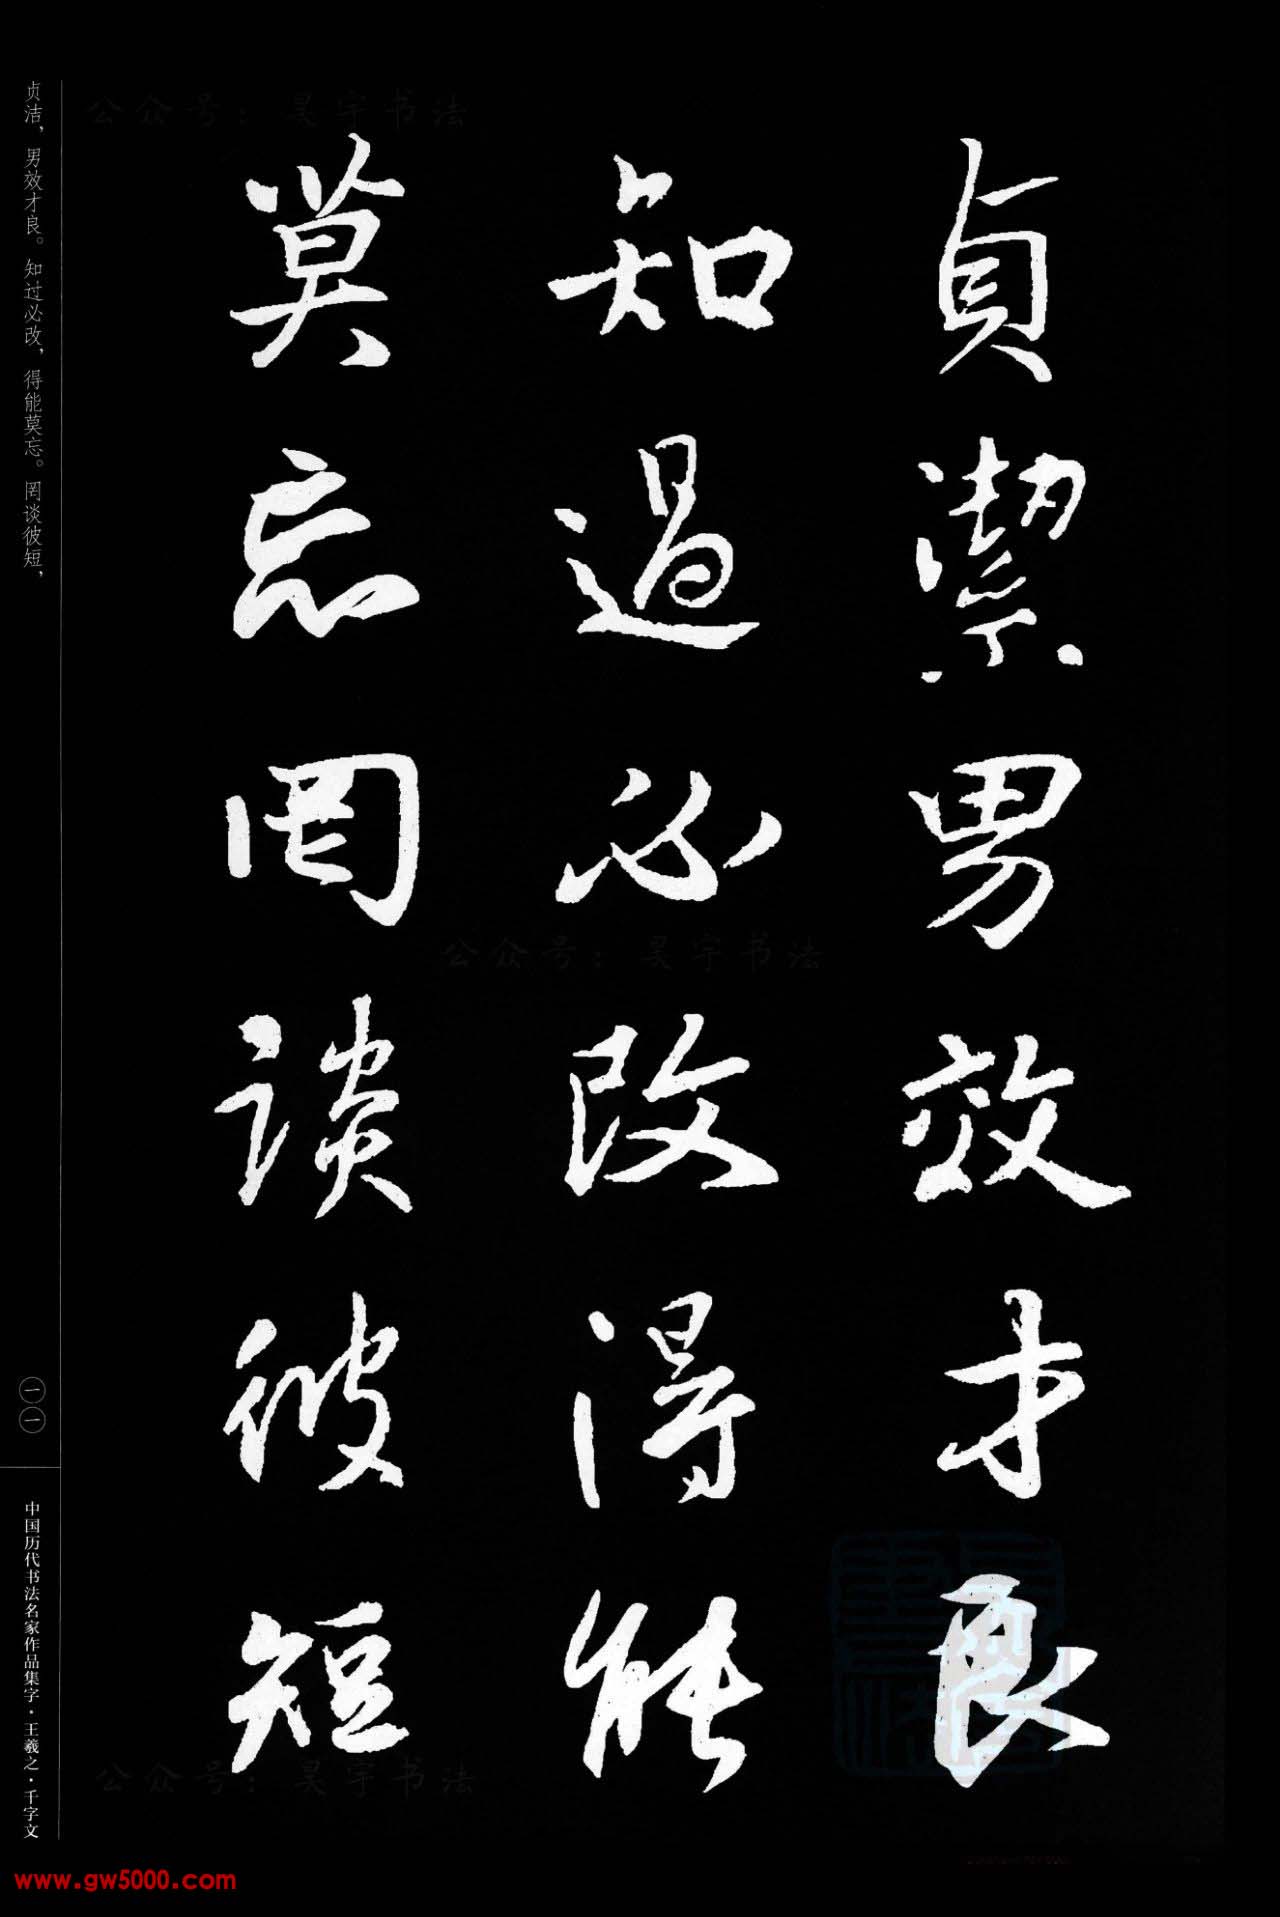 貞潔男效才良
知過必改得能
莫忘罔談彼短
贞洁，男效才良。知过必改，得能莫忘。罔谈彼短，
一一
中国历代书法名家作品集字·王羲之·千字文
公众号：昊宇书法
公众号：昊宇书法
公众号：昊宇书法
www.gw5000.com